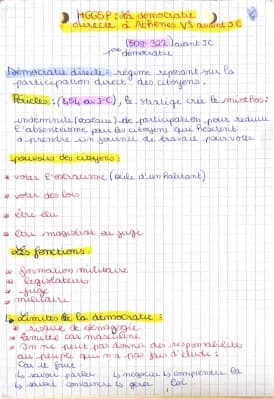 HGGSP : La démocratie
directe à Athènes Vs avant JC
(508-322) avant JC
1ère démocratie
Démocratie directe : régime reposant sur la
participation direct des citoyens.
Périclès : (454 av J-C), le stratège crée le misthos :
indemnité (salaire) de participation pour réduire
l'absentéisme parmi les citoyens qui hésitent
à prendre un journée de travail pour voter
pouvoirs des citoyens :
* voter l'ostracisme (exile d'un habitant)
* voter des lois
* être élu
* être magistrat ou juge
Les fonctions :
* formation militaire
* législateurs
* juge
* militaire
Limites de la démocratie :
* risque de démagogie
* limitée car masculine
* On ne peut pas donner des responsabilités
au peuple qui n'a pas fait d'étude :
Car il faut
↳ savoir parler ↳ négocier ↳ comprendre la
↳ savoir convaincre ↳ gérer loi